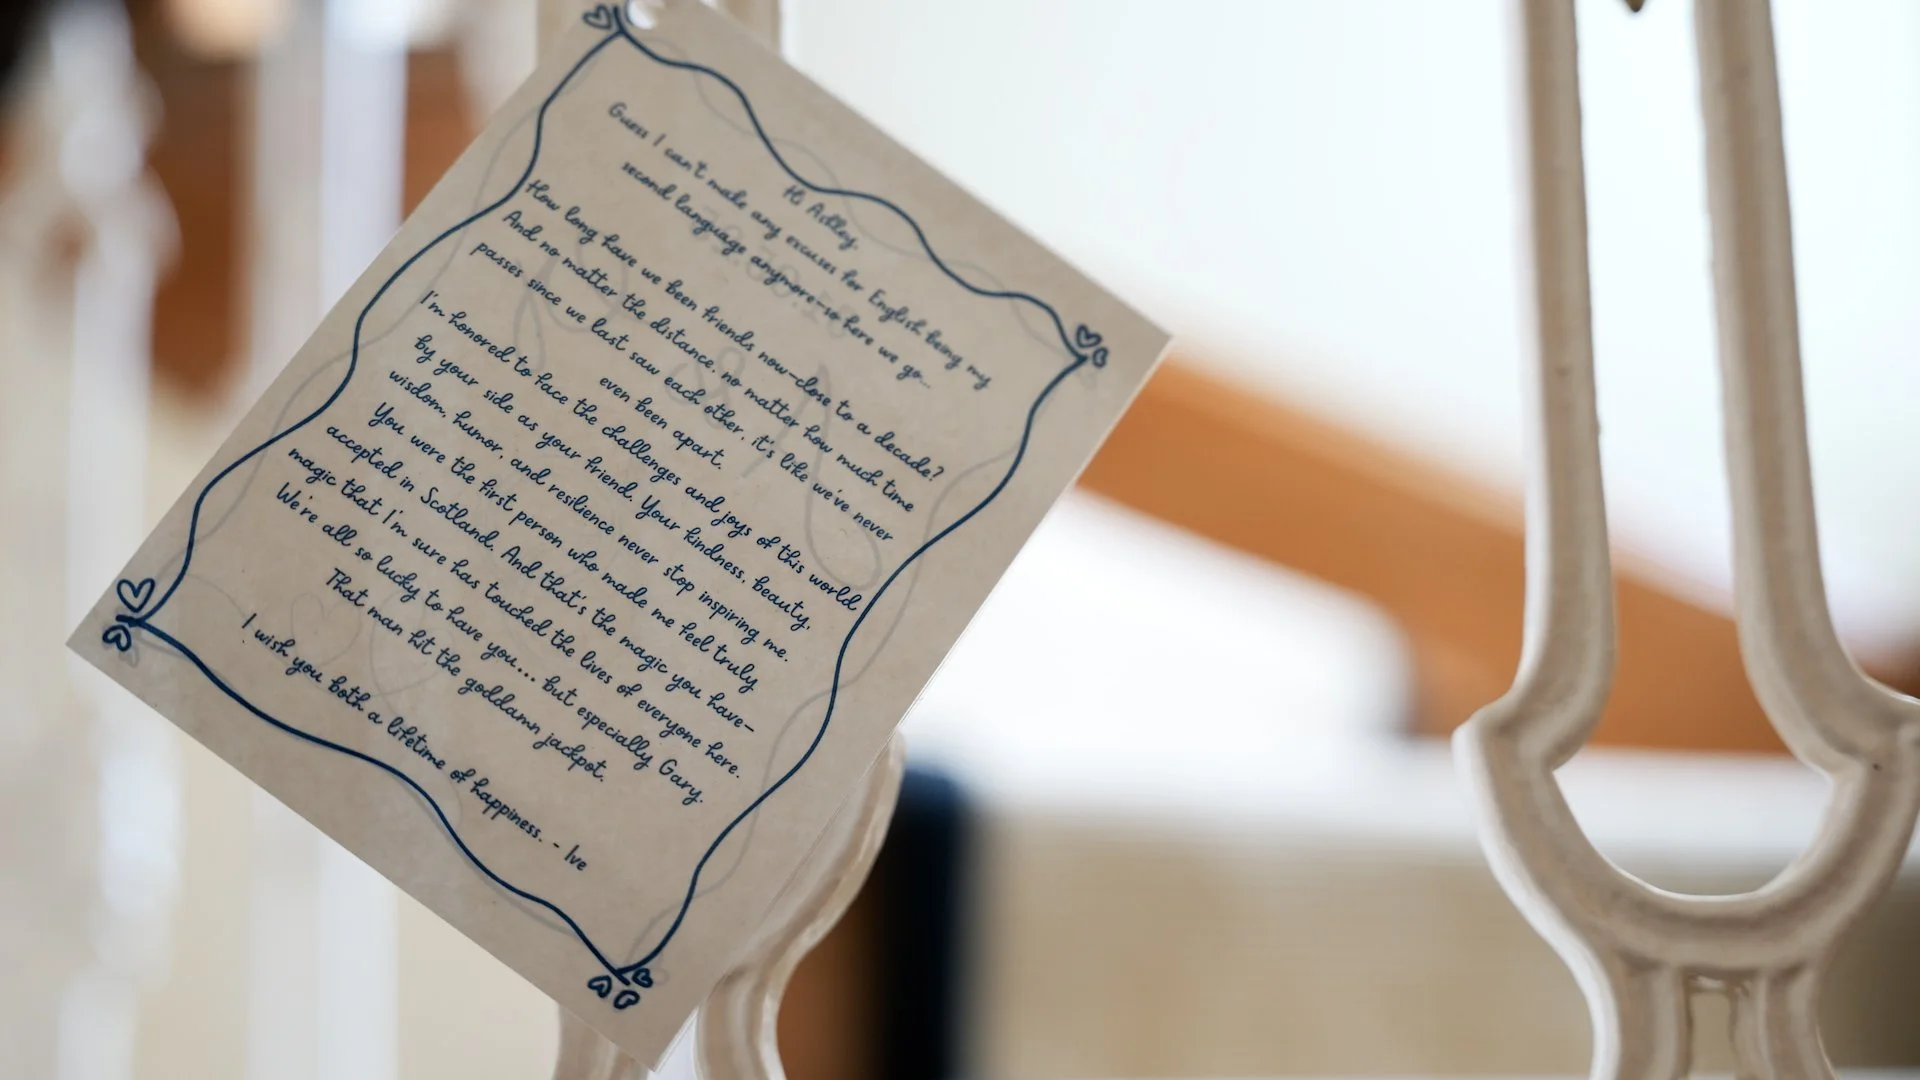 Hi Adley,
Guess I can't make any excuses for English being my
second language anymore—so here we go...
How long have we been friends now—close to a decade?
And no matter the distance, no matter how much time
passes since we last saw each other, it's like we've never
even been apart.
I'm honored to face the challenges and joys of this world
by your side as your friend. Your kindness, beauty,
wisdom, humor, and resilience never stop inspiring me.
You were the first person who made me feel truly
accepted in Scotland. And that's the magic you have—
magic that I'm sure has touched the lives of everyone here.
We're all so lucky to have you... but especially Gary.
That man hit the goddamn jackpot.
I wish you both a lifetime of happiness. - Ive